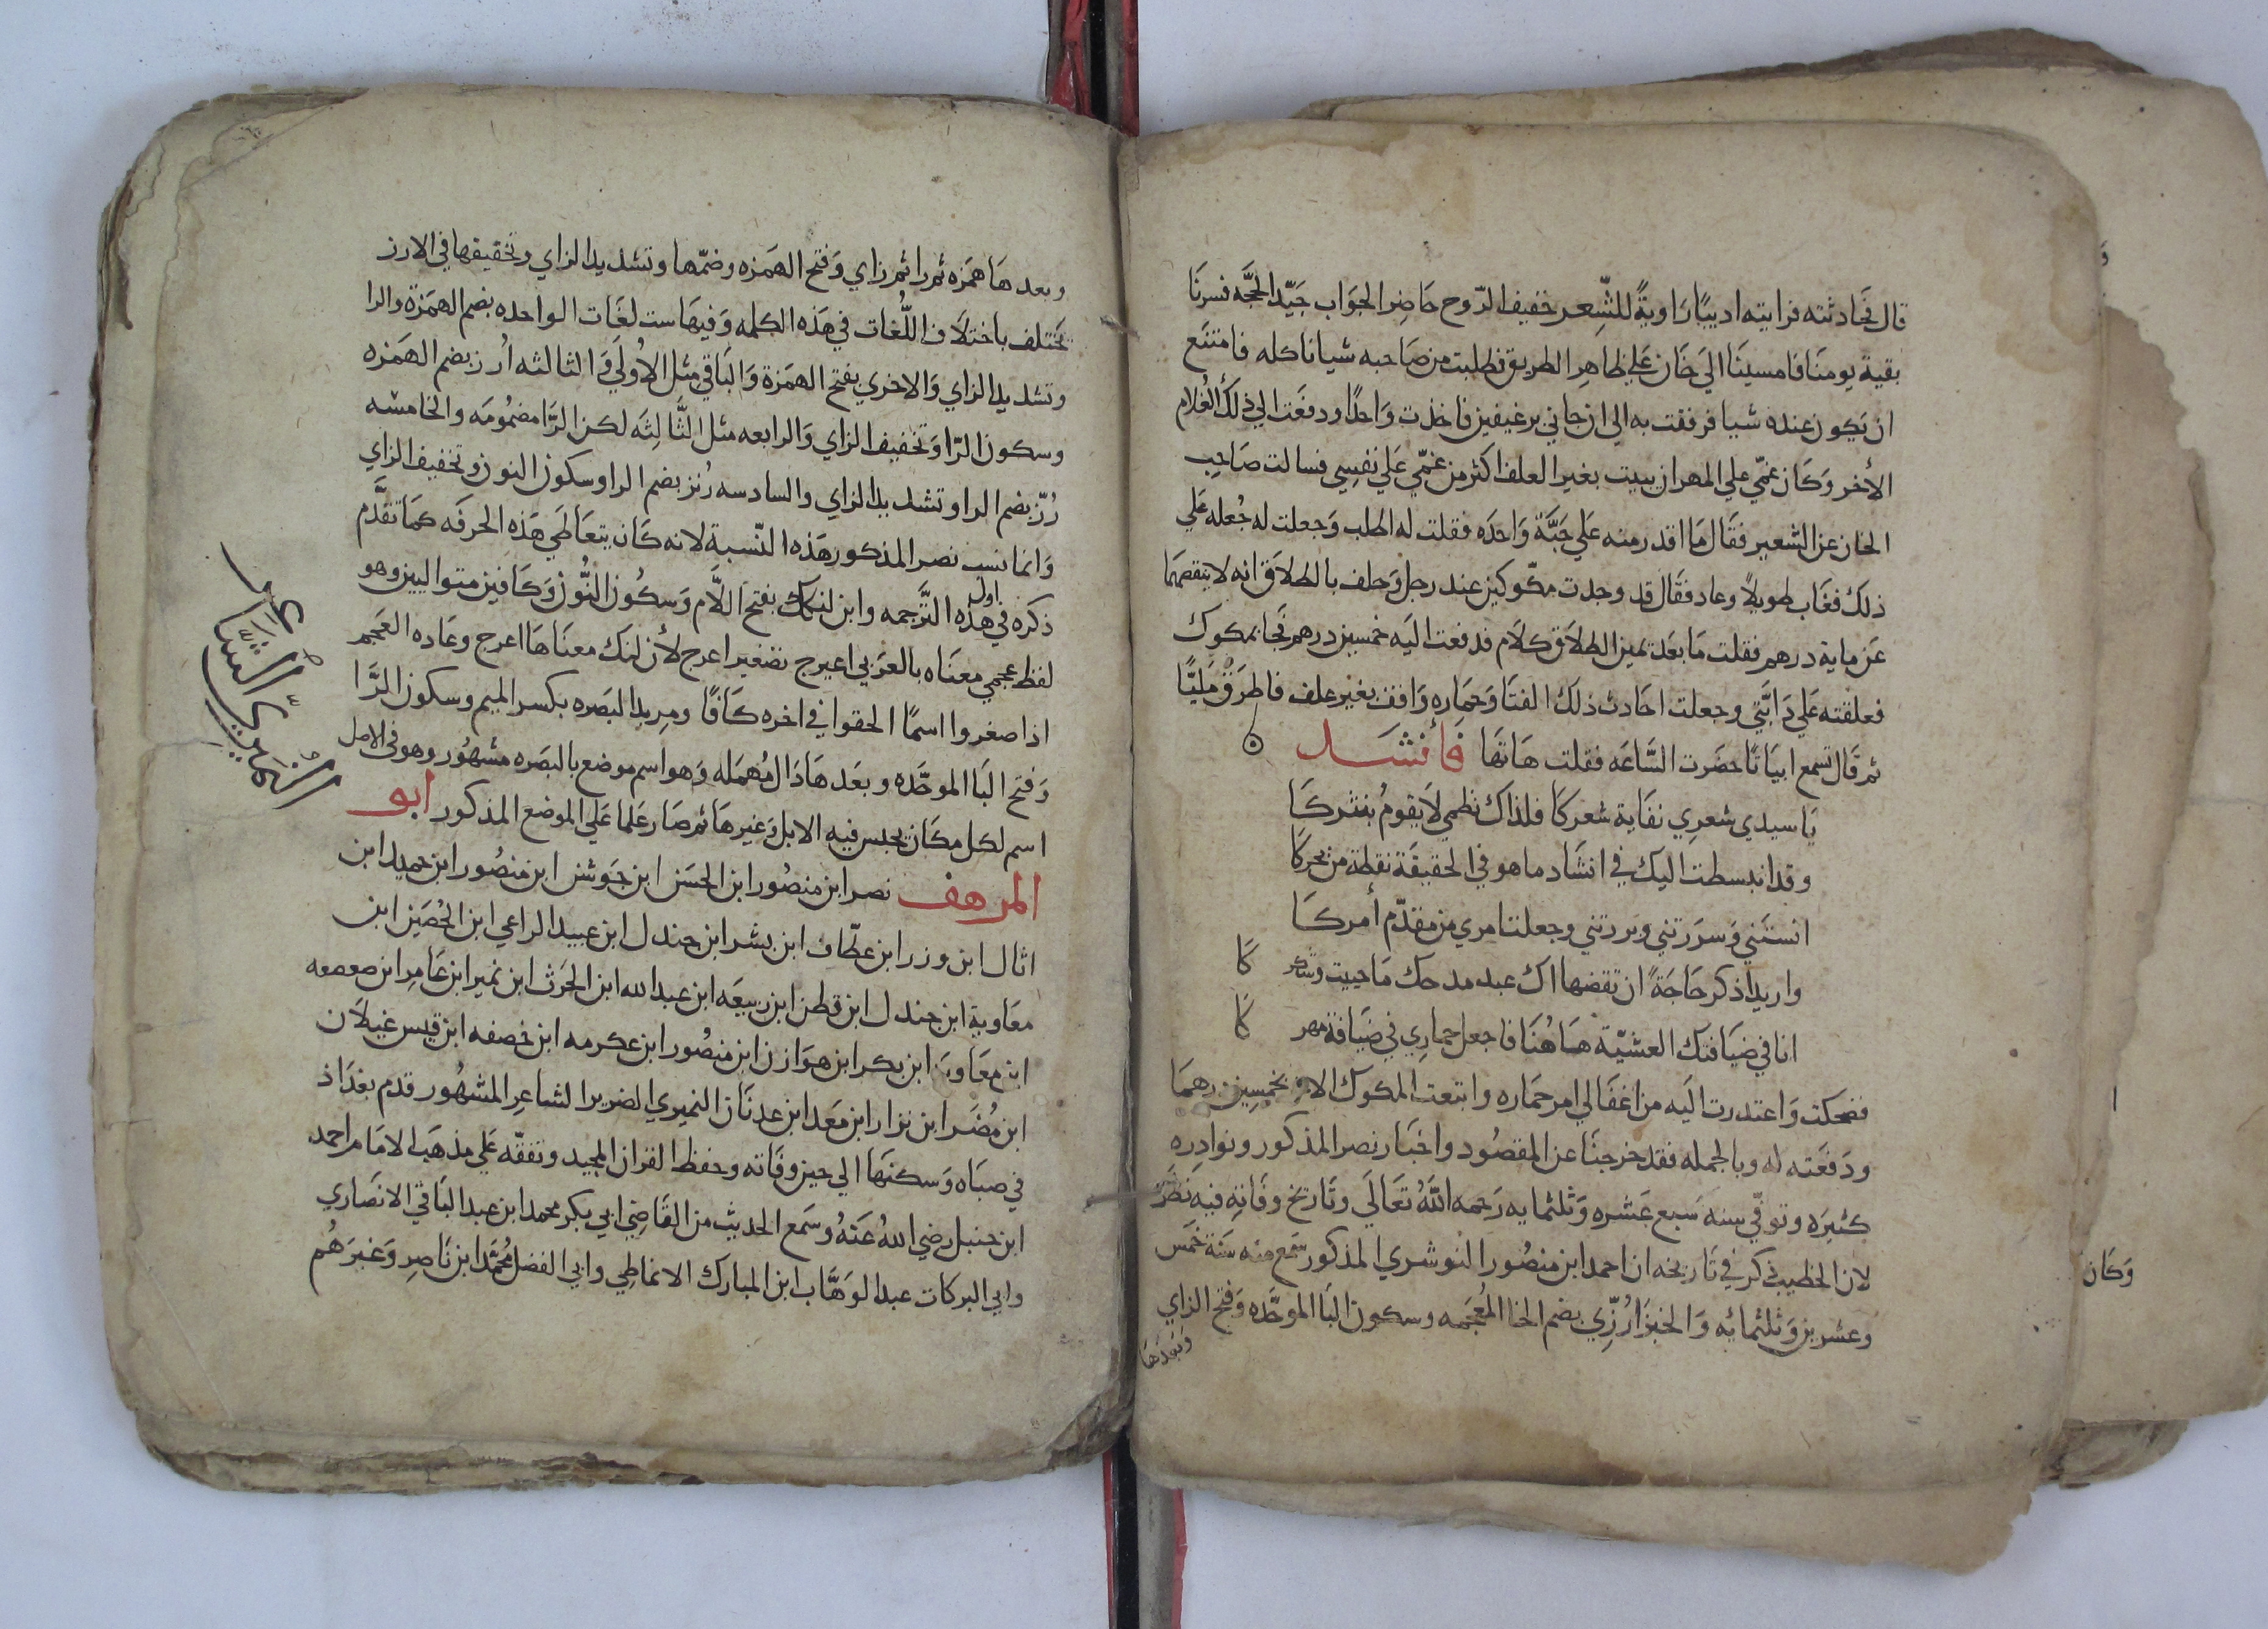 قال فحادثته فرايته اديبًا رَاويةً للشِّعر خفيف الرّوح حَاضِر الجوَاب جَيّد الحجَّه فسرنَا
بقية يومنَا فامسينَا الَي خَان عَلي ظاهِر الطريق فطلبت من صَاحبه شيا ناكله فامتنع
ان يَكون عنده شيا فرفقت به الي ان جاني برغيفين فاخذت وَاحدًا ودفعَت الي ذلك الغُلام
الأخر وَكَان غمّي علي المهر ان يبيت بغير العلف اكثر من غمّي عَلي نفسِي فسالت صَاحِب
الخان عن الشعير فقَال مَا اقدر منه عَلي حَبَّة وَاحدَه فقلت له اطلب وَجعلت له جُعله عَلي
ذلك فغَاب طويلاً وعاد فقَال قد وجدت مكّوكين عند رجل وَحلف بالطلاَق انه لا ينقصهمَا
عَن ماية درهم فقلت مَا بعَد يَمين الطلاَق كلاَم فدفعت اليَه خمسين درهم فجَا بمكوك
فعلقته عَلي دَابَّتي وجعلت احَادث ذلكَ الفتَا وَحمَاره وَاقف بغير علف فاطرَق مَليًّا
ثم قَال تسمع ابيَاتًا حضَرت السَّاعَه فقلت هَاتهَا فأنشَد
يَا سيدي شعرِي نفَاية شعركَا فلذاك نظمي لاَ يقومُ بنثركَا
وقد انبسطت اليك في انشَاد ما هو في الحقيقَة نقطة من بحركَا
انستَني وَسرَرتني وبَررتني وجعلت امري من مقدّم أمركَا
واريد اذكر حَاجَةً ان تقضها اك عبد مدحك مَا حييت وشكر كَا
انا في ضيَافتك العشيّة هَاهُنَا فاجعل حماري في ضيَافة مهر كَا
فضحكت وَاعتدرت اليَه من اغفَالي امر حمَاره وابتعت المكوك الاخر بخمسِين درهمَا
ودَفعَته له وبالجمله فقد خرجنَا عن المقصُود واخبَار نصر المذكور ونوادِره
كثيرَه وتوفّي سنه سَبع عَشره وَثلثمايه رَحمه اللَّهُ تعَالَي وتَاريخ وفَاتِه فيه نظَرٌ
لان الخطيب ذكر في تَاريخه ان احمد ابن منصُور النُوشري المذكور سَمع منه سَنة خمَس
وعشرين وَثلثمائه وَالخبزَارُزِّي بضم الخا المُعجَمه وسكون البَا الموحَّده وَفتح الزاي
وَبعدهَا
وبعدهَا همَزه ثم را ثم زاي وَفتح الهَمَزه وضمّها وتشديد الزاي وتخفيفها في الارز
يختلف باختلاَف اللُّغات في هَذه الكلمه وَفيهَا ست لغَات الواحده بضم الهمَزة والرا
وتشديد الزاي وَالاخري بفتح الهمَزة وَالبَاقي مثل الاُولَي وَالثالثه اُرز بضم الهَمَزه
وسكون الرّا وَتخفيف الزاي وَالرابعه مثل الثَّالِثَه لكن الرّا مضمُومَه والخامسَه
رُزّ بضم الرا وتشديد الزاي والسادسه رُنز بضم الرا وسكون النون وتخفيف الزاي
وَانما نسب نصر المذكور هَذه النّسبة لانه كَان يتعَاطَي هَذه الحرفَه كمَا تقدَّم
ذكره في اول هذه التَّرجمه وابن لنكك بفتح اللَّام وَسكُون النُّون وَكَافين متواليين وهو
لفظ عجمي معنَاه بالعرَبي اعيرج تصغير اعرج لأن لنك معنَاهَا اعرج وعَاده العَجم
اذا صغروا اسمًا الحقوا في اخره كَافًا ومِربد البَصَره بكسر الميم وسكون الرَّا
وَفتح البَا الموحَّده وبعَدهَا دَال مُهمَله وَهو اسم موضع بالبَصَره مشهُور وهو في الاصل
اسم لكل مكَان يحبس فيه الابل وَغيرهَا ثم صَار عَلما عَلي الموضع المذكور ابو
المرهف نصر ابن منصُور ابن الحسَن ابن جَوشن ابن منصُور ابن حميد ابن
اثال ابن وزر ابن عطّاف ابن بشر ابن جندل ابن عبيد الراعي ابن الحُصَين ابن
معَاوية ابن جندل ابن قطن ابن ربيعَه ابن عبد الله ابن الحَرث ابن نمير ابن عَامِر ابن صعصعه
ابن معَاويَة ابن بكر ابن هوَازن ابن منصُور ابن عكرمه ابن خصفه ابن قيس غيلاَن
ابن مُضَر ابن نزار ابن مَعَد ابن عدنَان النميري الضرير الشاعِر المشهُور قدم بغدَاذ
في صبَاه وَسكنهَا الي حين وفَاته وحفظ القران المجيد وتفقّه عَلي مذهَب الامَام احمد
ابن حنبل رضي اللهُ عَنهُ وسَمع الحديث من القَاضِي ابي بكر محمد ابن عبد البَاقي الانصَاري
وابي البركات عبد الوَهَّاب ابن المبارك الانماطي وابي الفضل مُحمّد ابن نَاصِر وَغيرَهُم
النميري الشَّاعر
وَكَان